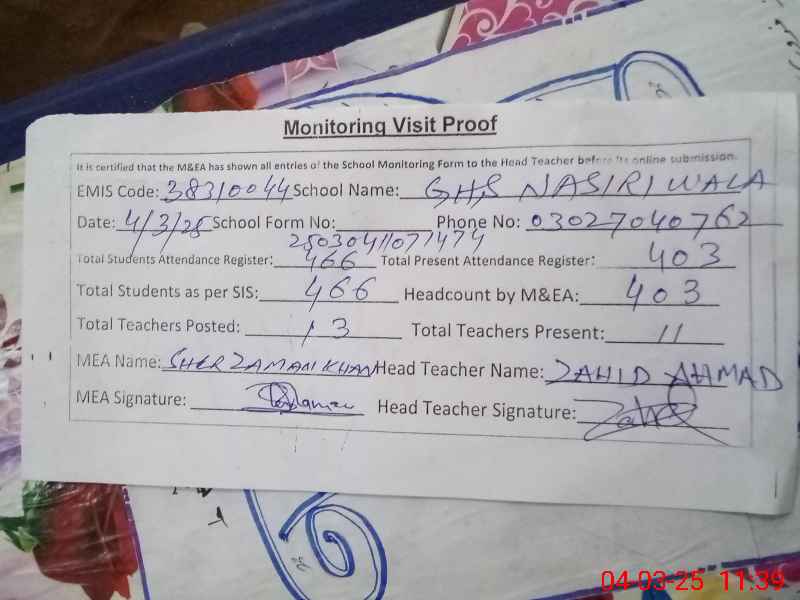 Monitoring Visit Proof
It is certified that the M&EA has shown all entries of the School Monitoring Form to the Head Teacher before its online submission.
EMIS Code: 38310044 School Name: GHS NASIRI WALA
Date: 4/3/25 School Form No: Phone No: 03027040762
25030411071474
Total Students Attendance Register: 466 Total Present Attendance Register: 403
Total Students as per SIS: 466 Headcount by M&EA: 403
Total Teachers Posted: 13 Total Teachers Present: 11
MEA Name: SHER ZAMAN KHAN Head Teacher Name: ZAHID AHMAD
MEA Signature: Head Teacher Signature:
04-03-25 11:39